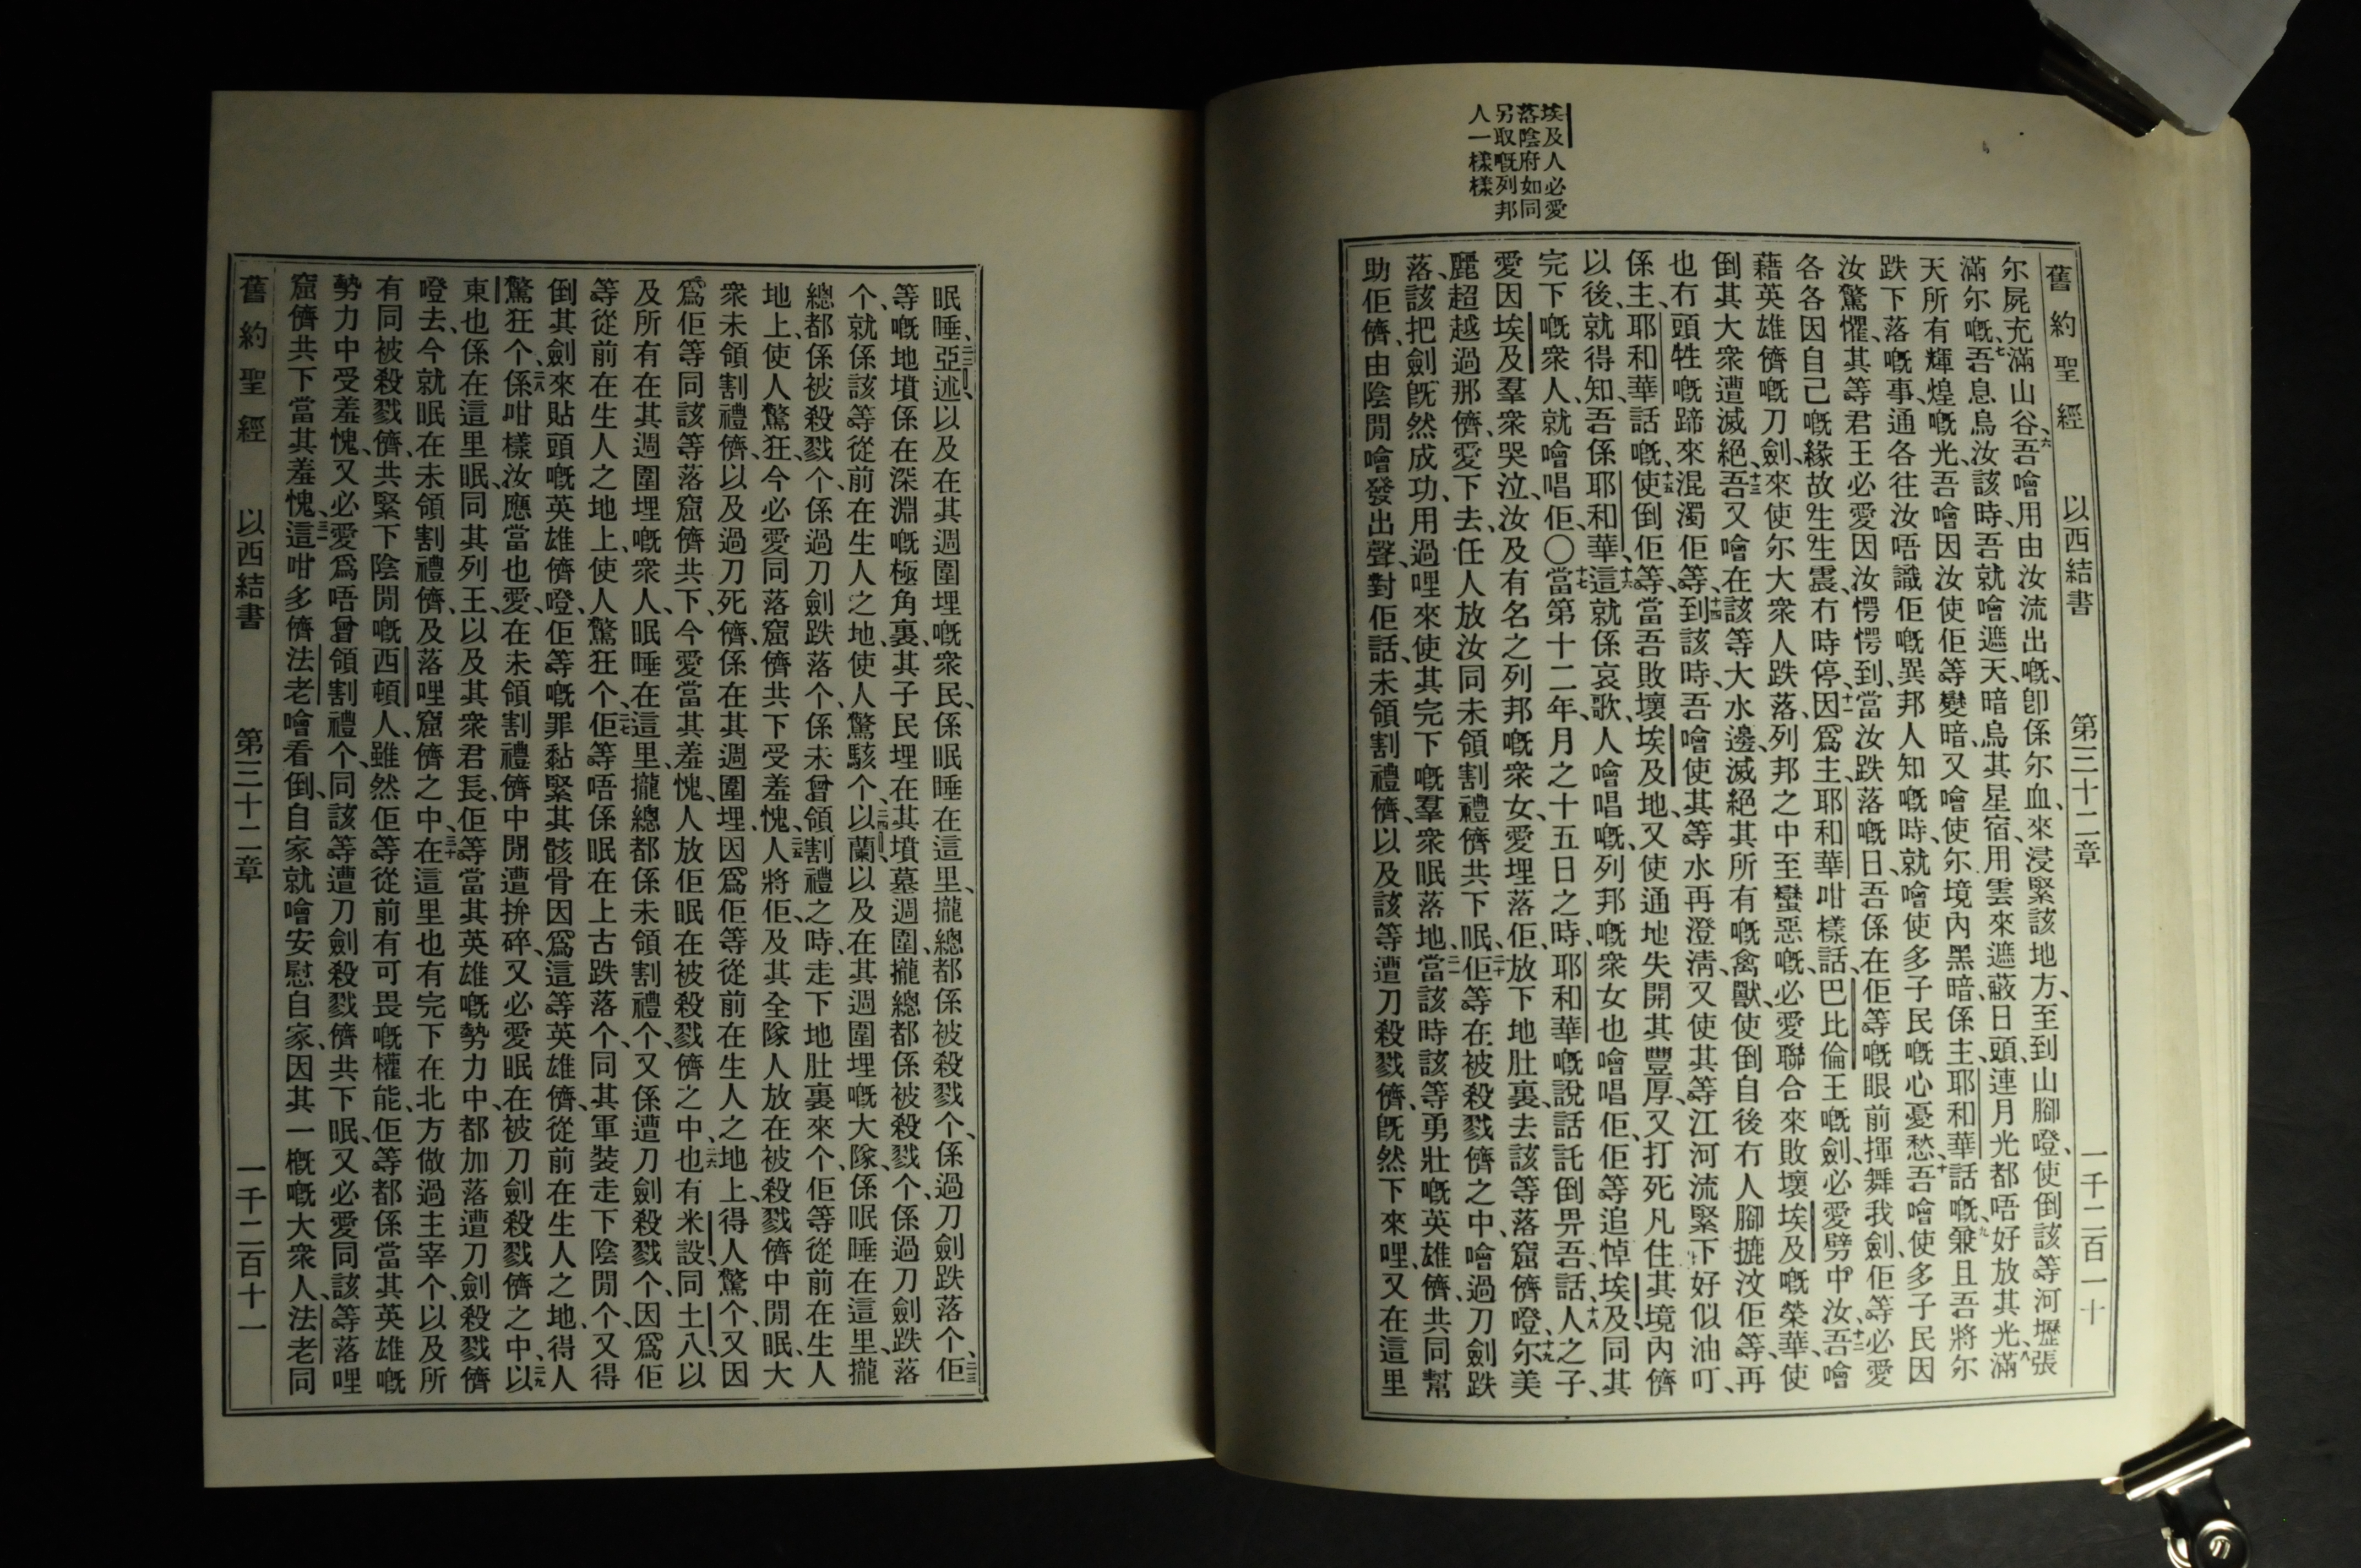 舊約聖經 以西結書 第三十二章 一千二百一十
埃及人必愛
落陰府如同
另取嘅列邦
人一樣樣
尔屍充滿山谷、六吾噲用由汝流出嘅、卽係尔血、來浸緊該地方、至到山腳嶝、使倒該等河壢張
滿尔嘅、七吾息烏汝該時、吾就噲遮天、暗烏其星宿、用雲來遮蔽日頭、連月光都唔好放其光、八滿
天所有輝煌嘅光、吾噲因汝使佢等變暗、又噲使尔境內黑暗、係主、耶和華話嘅、九兼且吾將尔
跌下落嘅事、通各往汝唔識佢嘅異邦人知嘅時、就噲使多子民嘅心憂愁、十吾噲使多子民因
汝驚懼、其等君王必愛因汝愕愕到、當汝跌落嘅日、吾係在佢等嘅眼前揮舞我劍、佢等必愛
各各因自己嘅緣故、生生震、冇時停、十一因爲主、耶和華咁樣話、巴比倫王嘅劍、必愛劈中汝、十二吾噲
藉英雄儕嘅刀劍、來使尔大衆人跌落、列邦之中至蠻惡嘅、必愛聯合來敗壞埃及嘅榮華、使
倒其大衆遭滅絕、十三吾又噲在該等大水邊、滅絕其所有嘅禽獸、使倒自後冇人腳㨢汶佢等、再
也冇頭牲嘅蹄來混濁佢等、十四到該時、吾噲使其等水再澄淸、又使其等江河流緊下好似油叮、
係主、耶和華話嘅、十五使倒佢等、當吾敗壞埃及地、又使通地失開其豐厚、又打死凡住其境內儕
以後、就得知、吾係耶和華、十六這就係哀歌、人噲唱嘅、列邦嘅衆女也噲唱佢、佢等追悼埃及、同其
完下嘅衆人、就噲唱佢、〇十七當第十二年、月之十五日之時、耶和華嘅說話託倒畀吾、話、十八人之子、
愛因埃及羣衆哭泣、汝及有名之列邦嘅衆女、愛埋落佢、放下地肚裏去、該等落窟儕嶝、十九尔美
麗超越過那儕、愛下去、任人放汝同未領割禮儕共下眠、二十佢等在被殺戮儕之中、噲過刀劍跌
落、該把劍旣然成功、用過哩來使其完下嘅羣衆眠落地、二一當該時該等勇壯嘅英雄儕、共同幫
助佢儕、由陰閒噲發出聲、對佢話、未領割禮儕、以及該等遭刀殺戮儕、旣然下來哩、又在這里
眠睡、二二亞述、以及在其週圍埋嘅衆民、係眠睡在這里、攏總都係被殺戮个、係過刀劍跌落个、二三佢
等嘅地墳係在深淵嘅極角裏、其子民埋在其墳墓週圍、攏總都係被殺戮个、係過刀劍跌落
个、就係該等從前在生人之地、使人驚駭个、二四以蘭、以及在其週圍埋嘅大隊、係眠睡在這里、攏
總都係被殺戮个、係過刀劍跌落个、係未曾領割禮之時、走下地肚裏來个、佢等從前在生人
地上、使人驚狂、今必愛同落窟儕共下受羞愧、二五人將佢、及其全隊人放在被殺戮儕中閒眠、大
衆未領割禮儕、以及過刀死儕、係在其週圍埋、因爲佢等從前在生人之地上、得人驚个、又因
爲佢等同該等落窟儕共下、今愛當其羞愧、人放佢眠在被殺戮儕之中、二六也有米設、同土八、以
及所有在其週圍埋嘅衆人、眠睡在這里、攏總都係未領割禮个、又係遭刀劍殺戮个、因爲佢
等從前在生人之地上、使人驚狂个、二七佢等唔係眠在上古跌落个、同其軍裝走下陰閒个、又得
倒其劍來貼頭嘅英雄儕嶝、佢等嘅罪黏緊其骸骨、因爲這等英雄儕、從前在生人之地、得人
驚狂个、二八係咁樣汝應當也愛、在未領割禮儕中閒遭拚碎、又必愛眠在被刀劍殺戮儕之中、二九以
東也係在這里眠、同其列王、以及其衆君長、佢等當其英雄嘅勢力中、都加落遭刀劍殺戮儕
嶝去、今就眠在未領割禮儕、及落哩窟儕之中、三十在這里也有完下在北方做過主宰个、以及所
有同被殺戮儕、共緊下陰閒嘅西頓人、雖然佢等從前有可畏嘅權能、佢等都係當其英雄嘅
勢力中受羞愧、又必愛爲唔曾領割禮个、同該等遭刀劍殺戮儕共下眠、又必愛同該等落哩
窟儕共下當其羞愧、三一這咁多儕、法老噲看倒、自家就噲安慰自家、因其一概嘅大衆人、法老同
舊約聖經 以西結書 第三十二章 一千二百十一